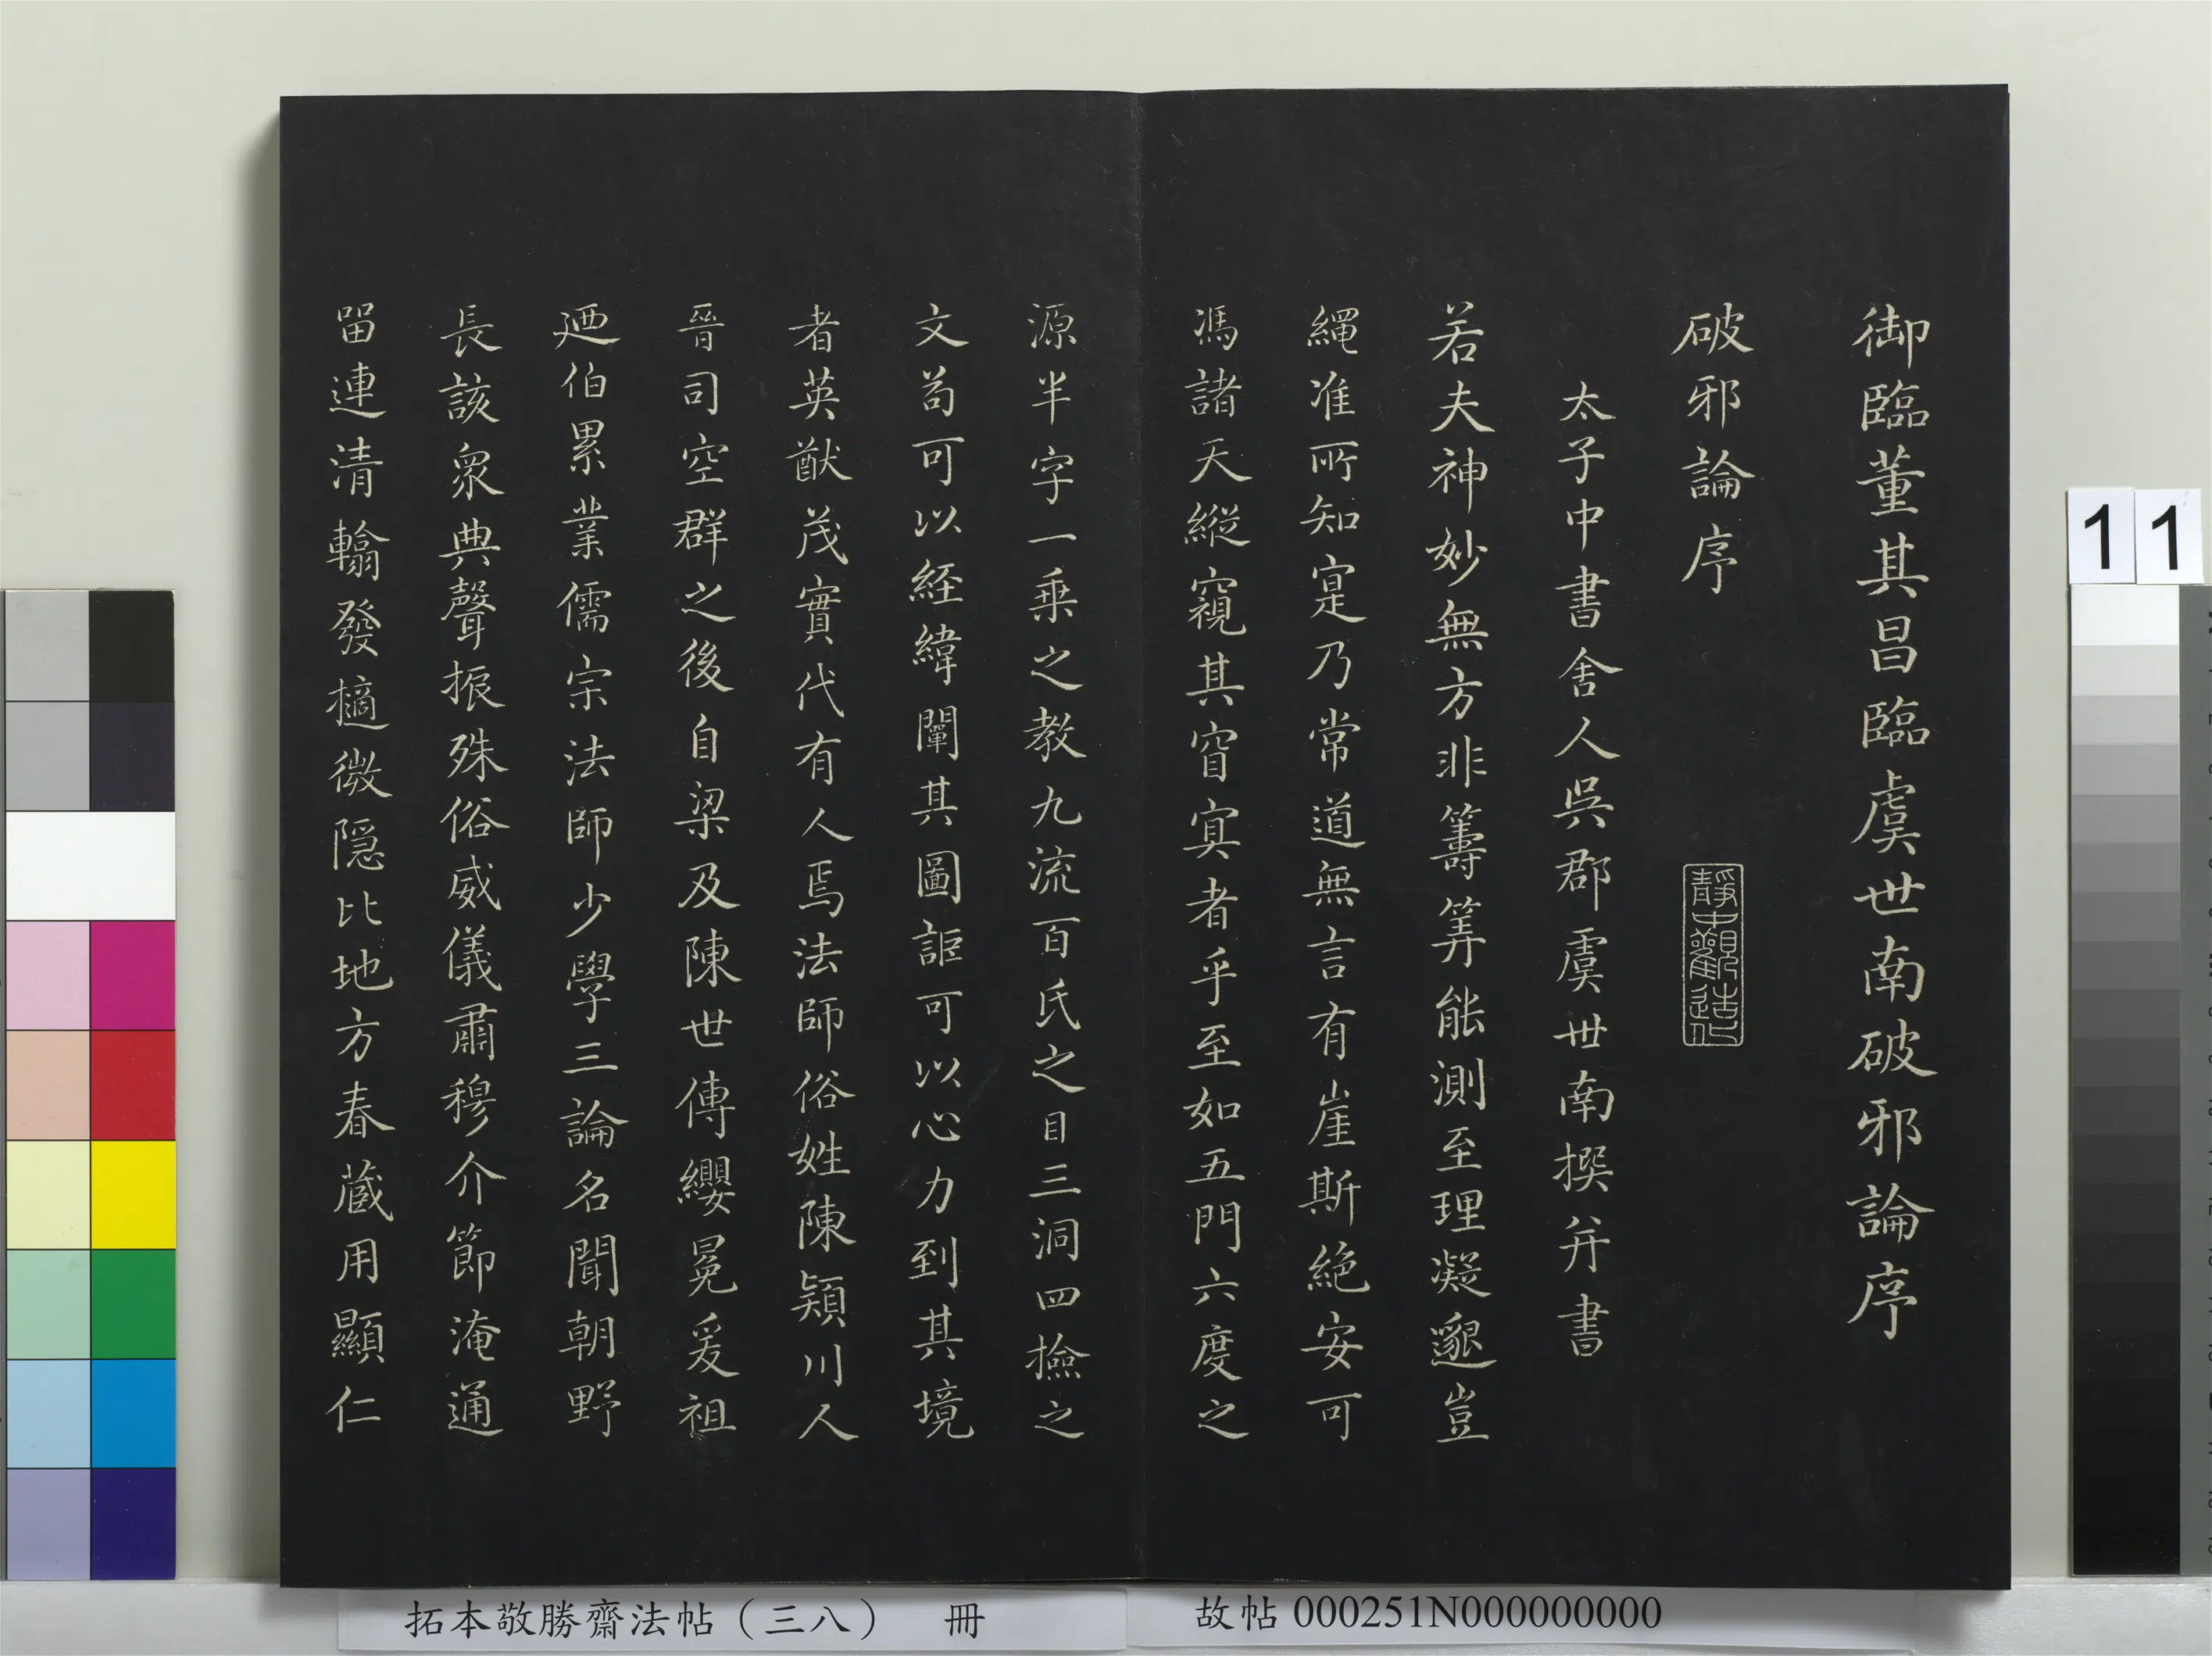 御臨董其昌臨虞世南破邪論序
破邪論序
靜中觀造化
太子中書舍人吳郡虞世南撰并書
若夫神妙無方非籌筭能測至理凝邈豈
繩准所知寔乃常道無言有崖斯絕安可
馮諸天縱窺其窅寘者乎至如五門六度之
源半字一乘之教九流百氏之目三洞四撿之
文苟可以經緯闡其圖詎可以心力到其境
者英猷茂實代有人焉法師俗姓陳潁川人
晉司空群之後自梁及陳世傳纓冕爰祖
廼伯累業儒宗法師少學三論名聞朝野
長該衆典聲振殊俗威儀肅穆介節淹通
留連清翰發擿微隱比地方春蔵用顯仁
拓本敬勝齋法帖（三八） 冊
故帖 000251N000000000
11